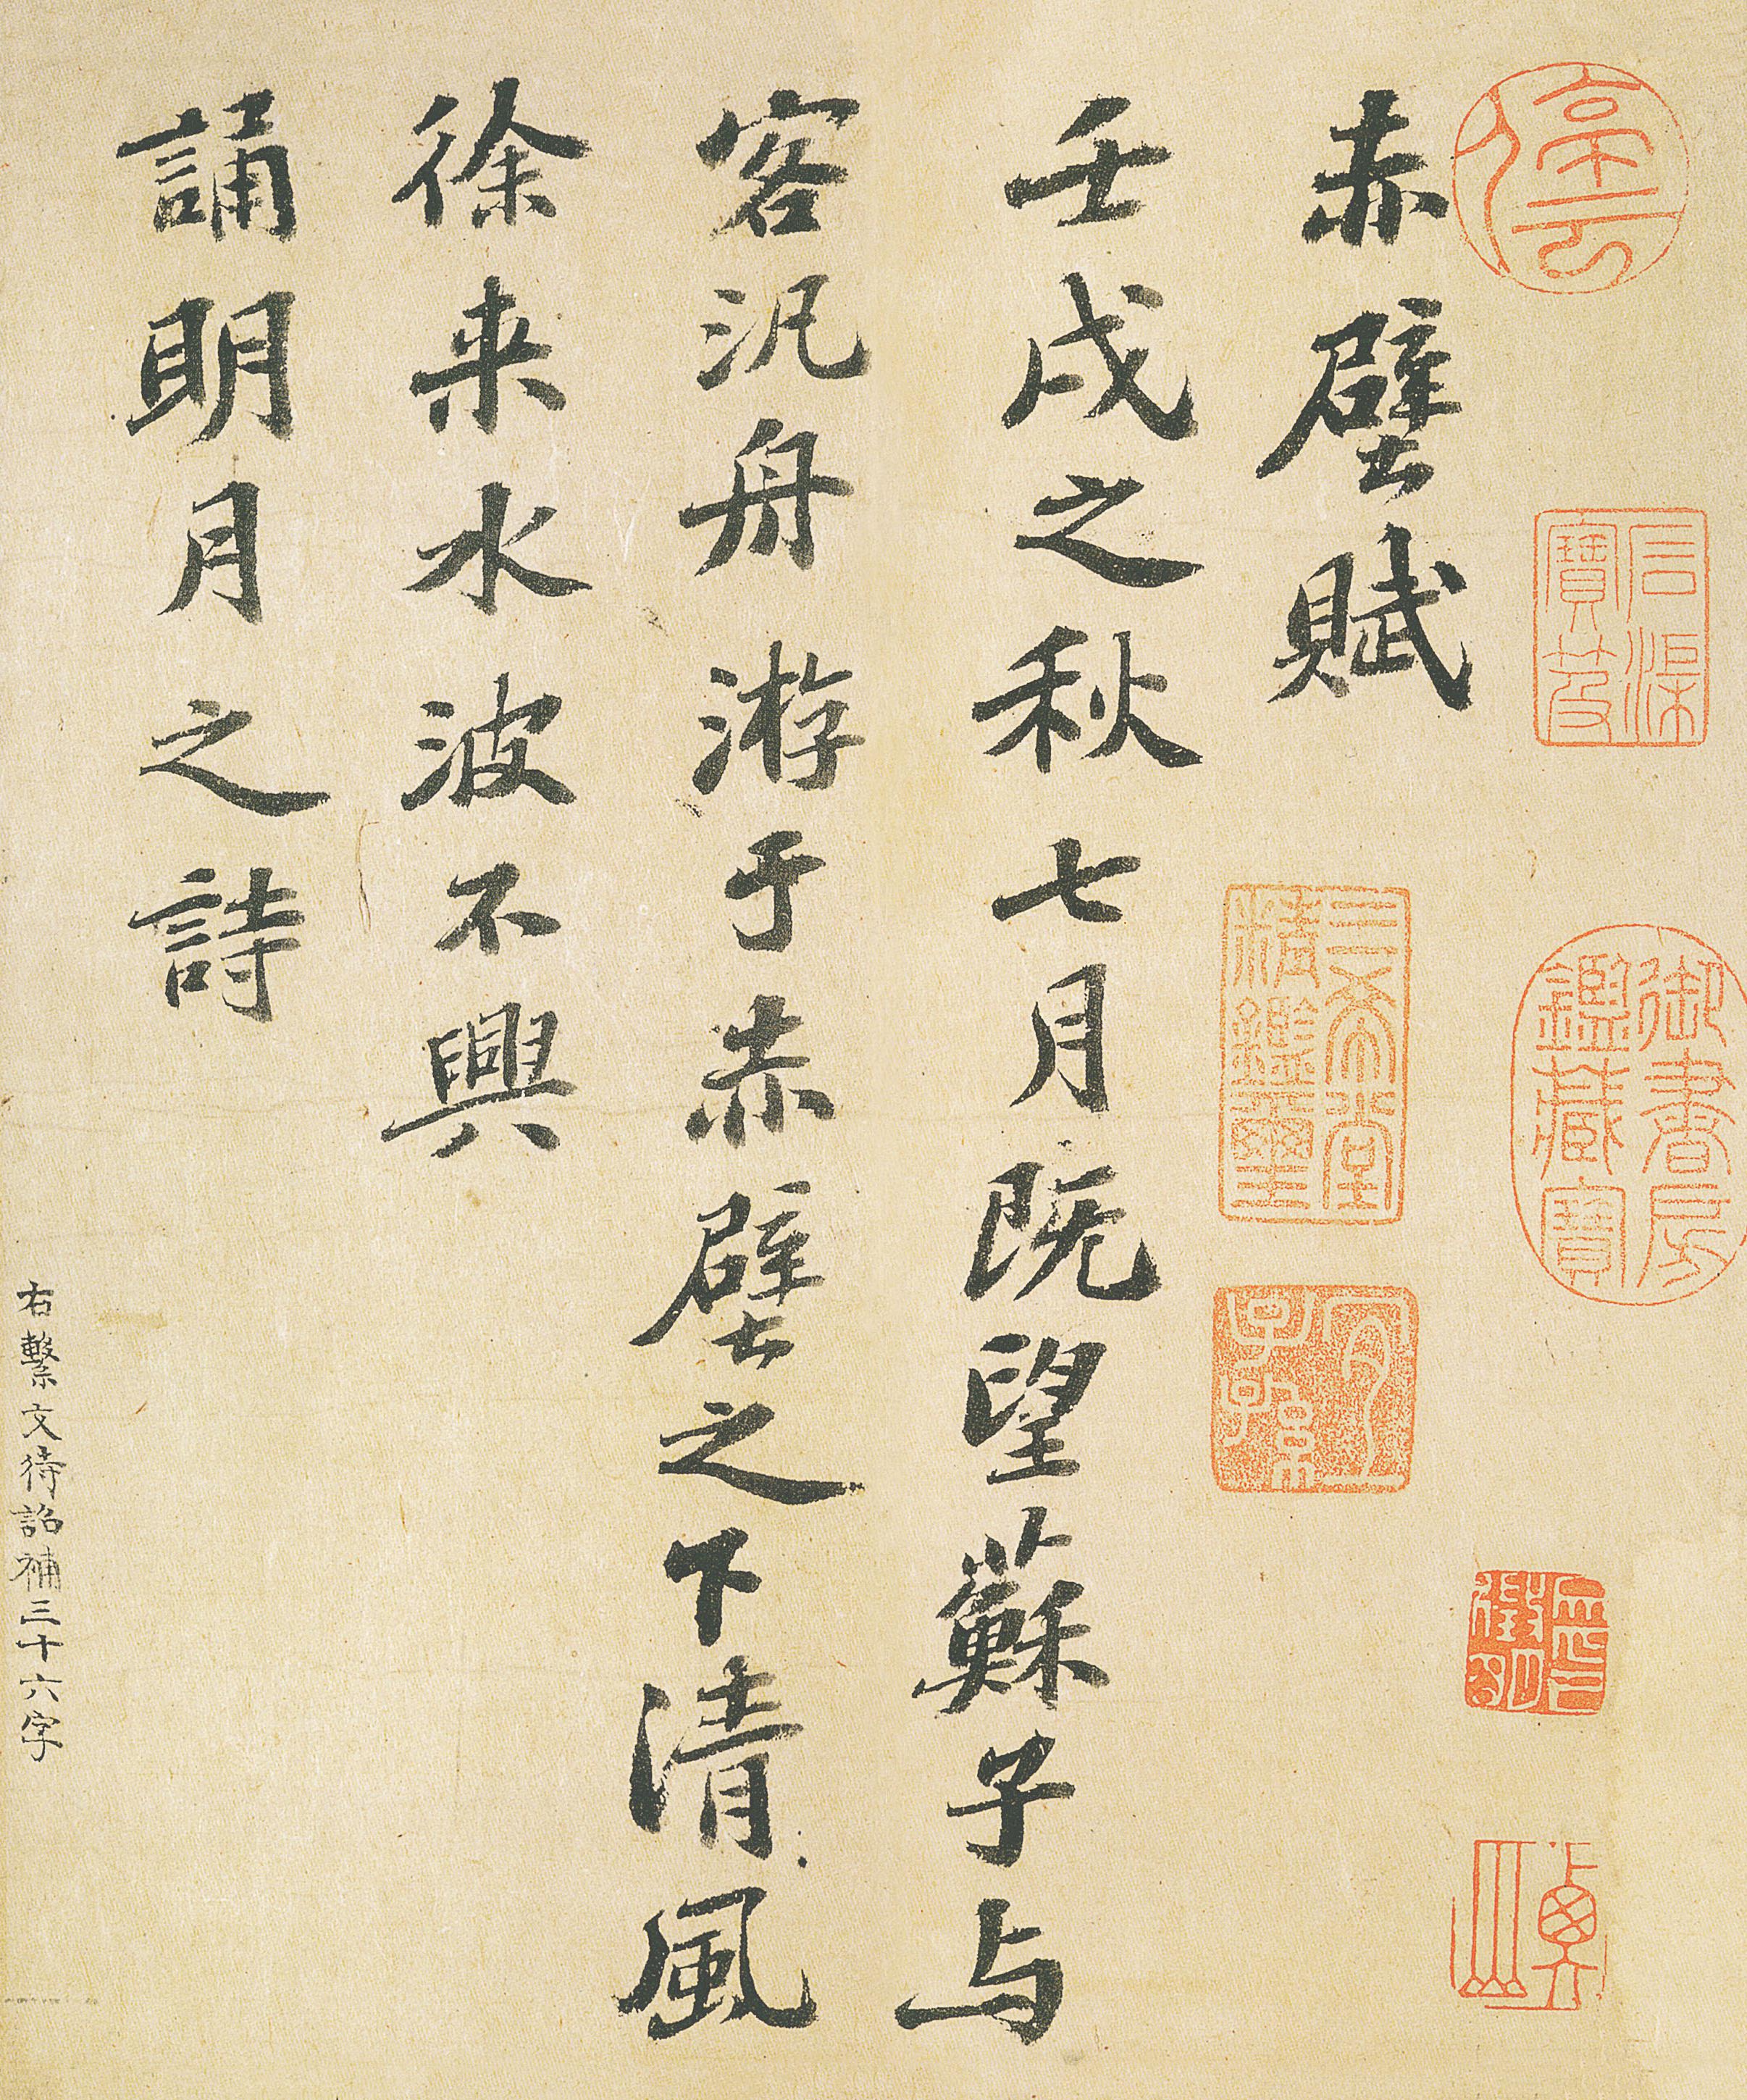 赤壁賦
壬戌之秋七月既望蘇子与
客汎舟游于赤壁之下清風
徐来水波不興
誦明月之詩
右繫文待詔補三十六字
石渠寶笈
御書房鑑藏寶
三希堂精鑑璽
宜子孫